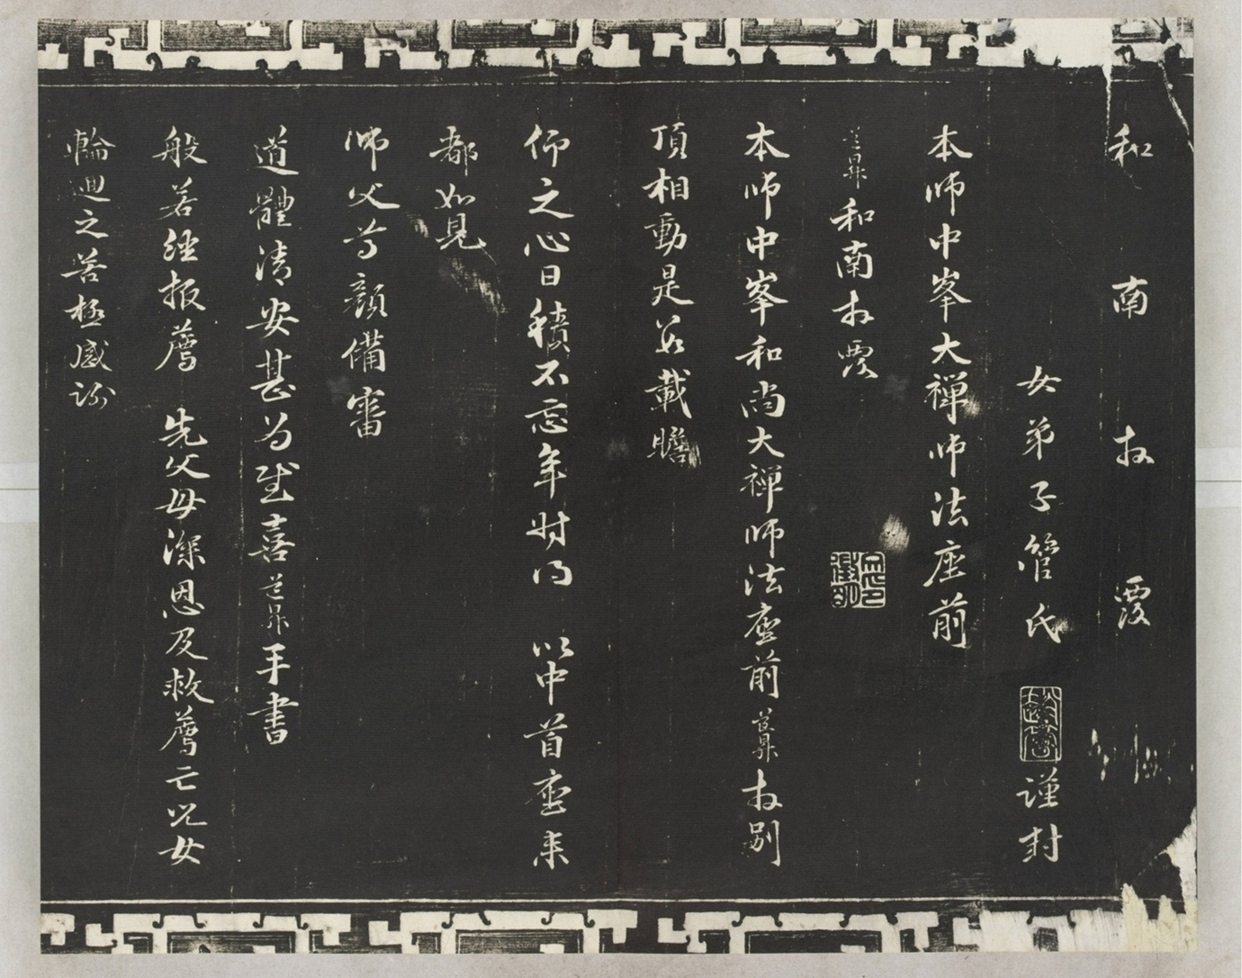 和南拜覆
女弟子管氏 謹封
本師中峯大禪師法座前
道昇和南拜覆
本師中峯和尚大禪師法座前道昇拜別
頂相動是數載瞻
仰之心日積不忘年時得 以中首座來
都如見
師父尊顏備審
道體清安甚為慰喜道昇手書
般若經报薦 先父母深恩及救薦亡兒女
輪迴之苦極感謝